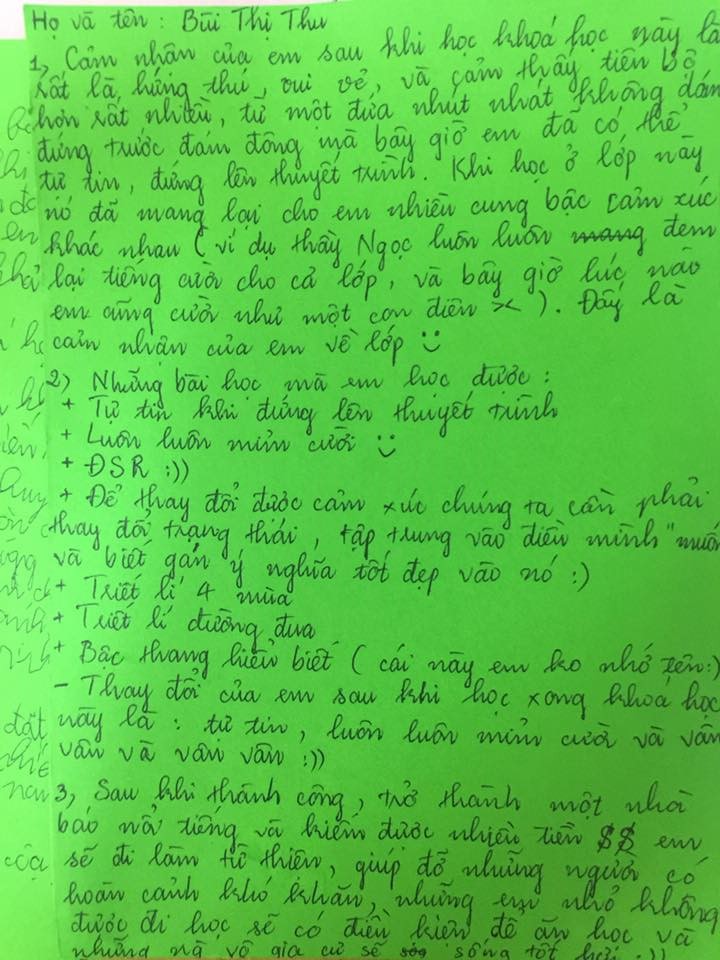 Họ và tên : Bùi Thị Thu
1, Cảm nhận của em sau khi học khoá học này là
rất là hứng thú, vui vẻ, và cảm thấy tiến bộ
hơn rất nhiều, từ một đứa nhút nhát không dám
đứng trước đám đông mà bây giờ em đã có thể
tự tin, đứng lên thuyết trình. Khi học ở lớp này
nó đã mang lại cho em nhiều cung bậc cảm xúc
khác nhau ( ví dụ thầy Ngọc luôn luôn mang đem
lại tiếng cười cho cả lớp, và bây giờ lúc nào
em cũng cười như một con điên >< ). Đấy là
cảm nhận của em về lớp :)
2) Những bài học mà em học được :
+ Tự tin khi đứng lên thuyết trình
+ Luôn luôn mỉm cười :)
+ ĐSR :))
+ Để thay đổi được cảm xúc chúng ta cần phải
thay đổi trạng thái, tập trung vào điều mình "muốn
và biết gán ý nghĩa tốt đẹp vào nó :)
+ Triết lí 4 mùa
+ Triết lí đường đua
+ Bậc thang hiểu biết ( cái này em ko nhớ tên:)
- Thay đổi của em sau khi học xong khoá học
này là : tự tin, luôn luôn mỉm cười và vân
vân và vân vân :))
3, Sau khi thành công, trở thành một nhà
báo nổi tiếng và kiếm được nhiều tiền $$ em
sẽ đi làm từ thiện, giúp đỡ những người có
hoàn cảnh khó khăn, những em nhỏ không
được đi học sẽ có điều kiện để ăn học và
những vô gia cư sẽ sống tốt hơn :))